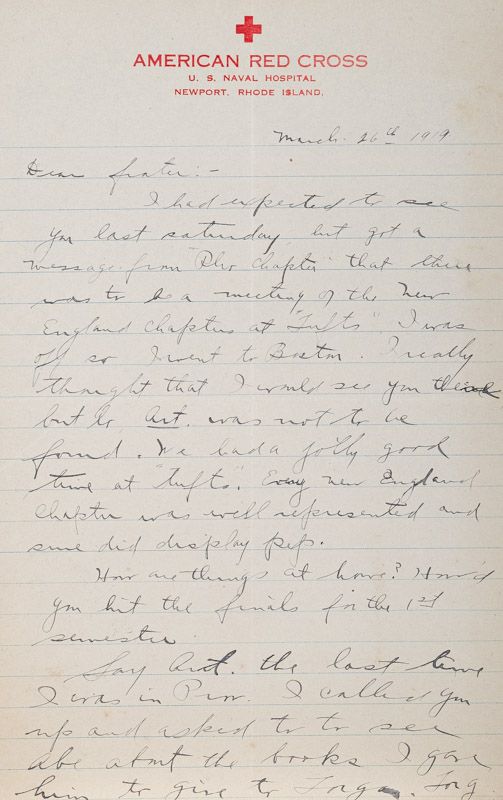 AMERICAN RED CROSS
U. S. NAVAL HOSPITAL
NEWPORT, RHODE ISLAND.
March. 26th 1919
Dear frater:-
I had expected to see
you last saturday, but got a
message from "Rho Chapter" that there
was to be a meeting of the New
England Chapters at "Tufts". I was
off so I went to Boston. I really
thought that I would see you there
but lo, Art. was not to be
found. We had a jolly good
time at "Tufts". Every New England
Chapter was well represented and
sure did display pep.
How are things at home? How'd
you hit the finals for the 1st
semester
Say Art. the last time
I was in Prov. I called you
up and asked to to see
abe about the books I gave
him to give to